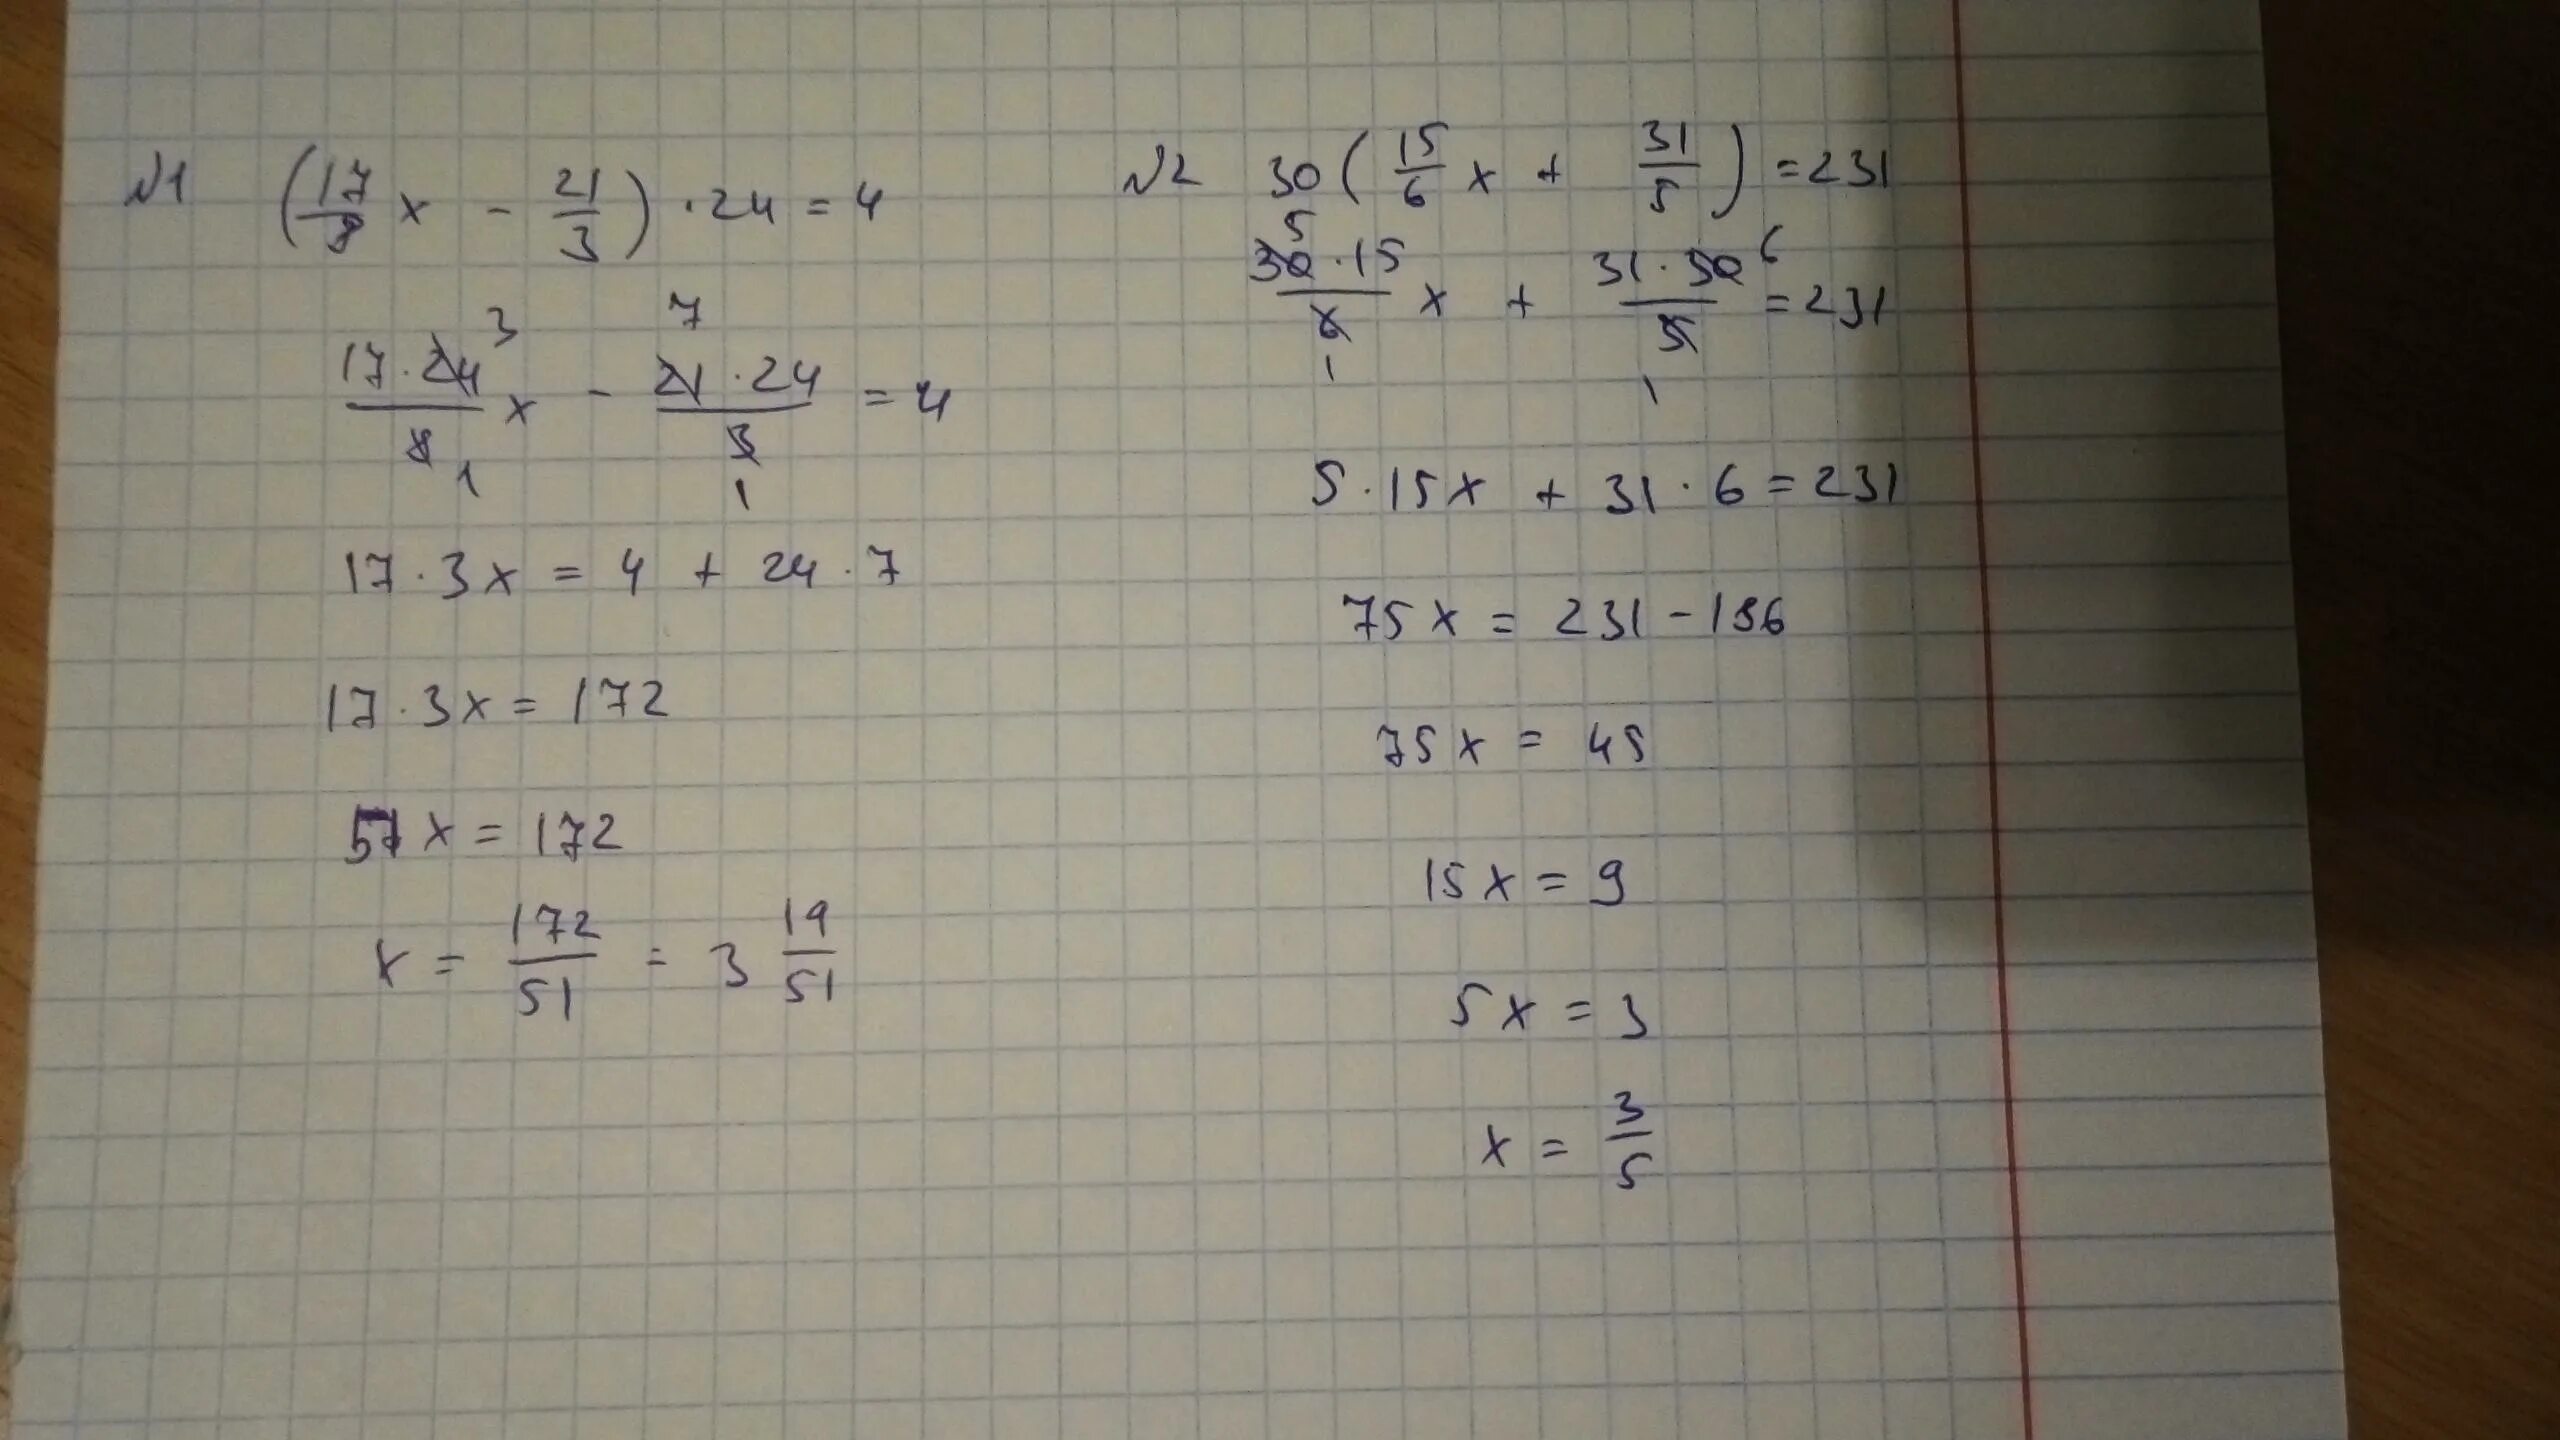 №1 (17/8 x - 21/3) · 24 = 4
17 · 24 3 / 8 1 x - 7 21 · 24 / 3 1 = 4
17 · 3x = 4 + 24 · 7
17 · 3x = 172
51 x = 172
x = 172/51 = 3 19/51
№2 30 (15/6 x + 31/5) = 231
5 30 · 15 / 6 1 x + 31 · 30 6 / 5 1 = 231
5 · 15x + 31 · 6 = 231
75x = 231 - 186
75x = 45
15x = 9
5x = 3
x = 3/5